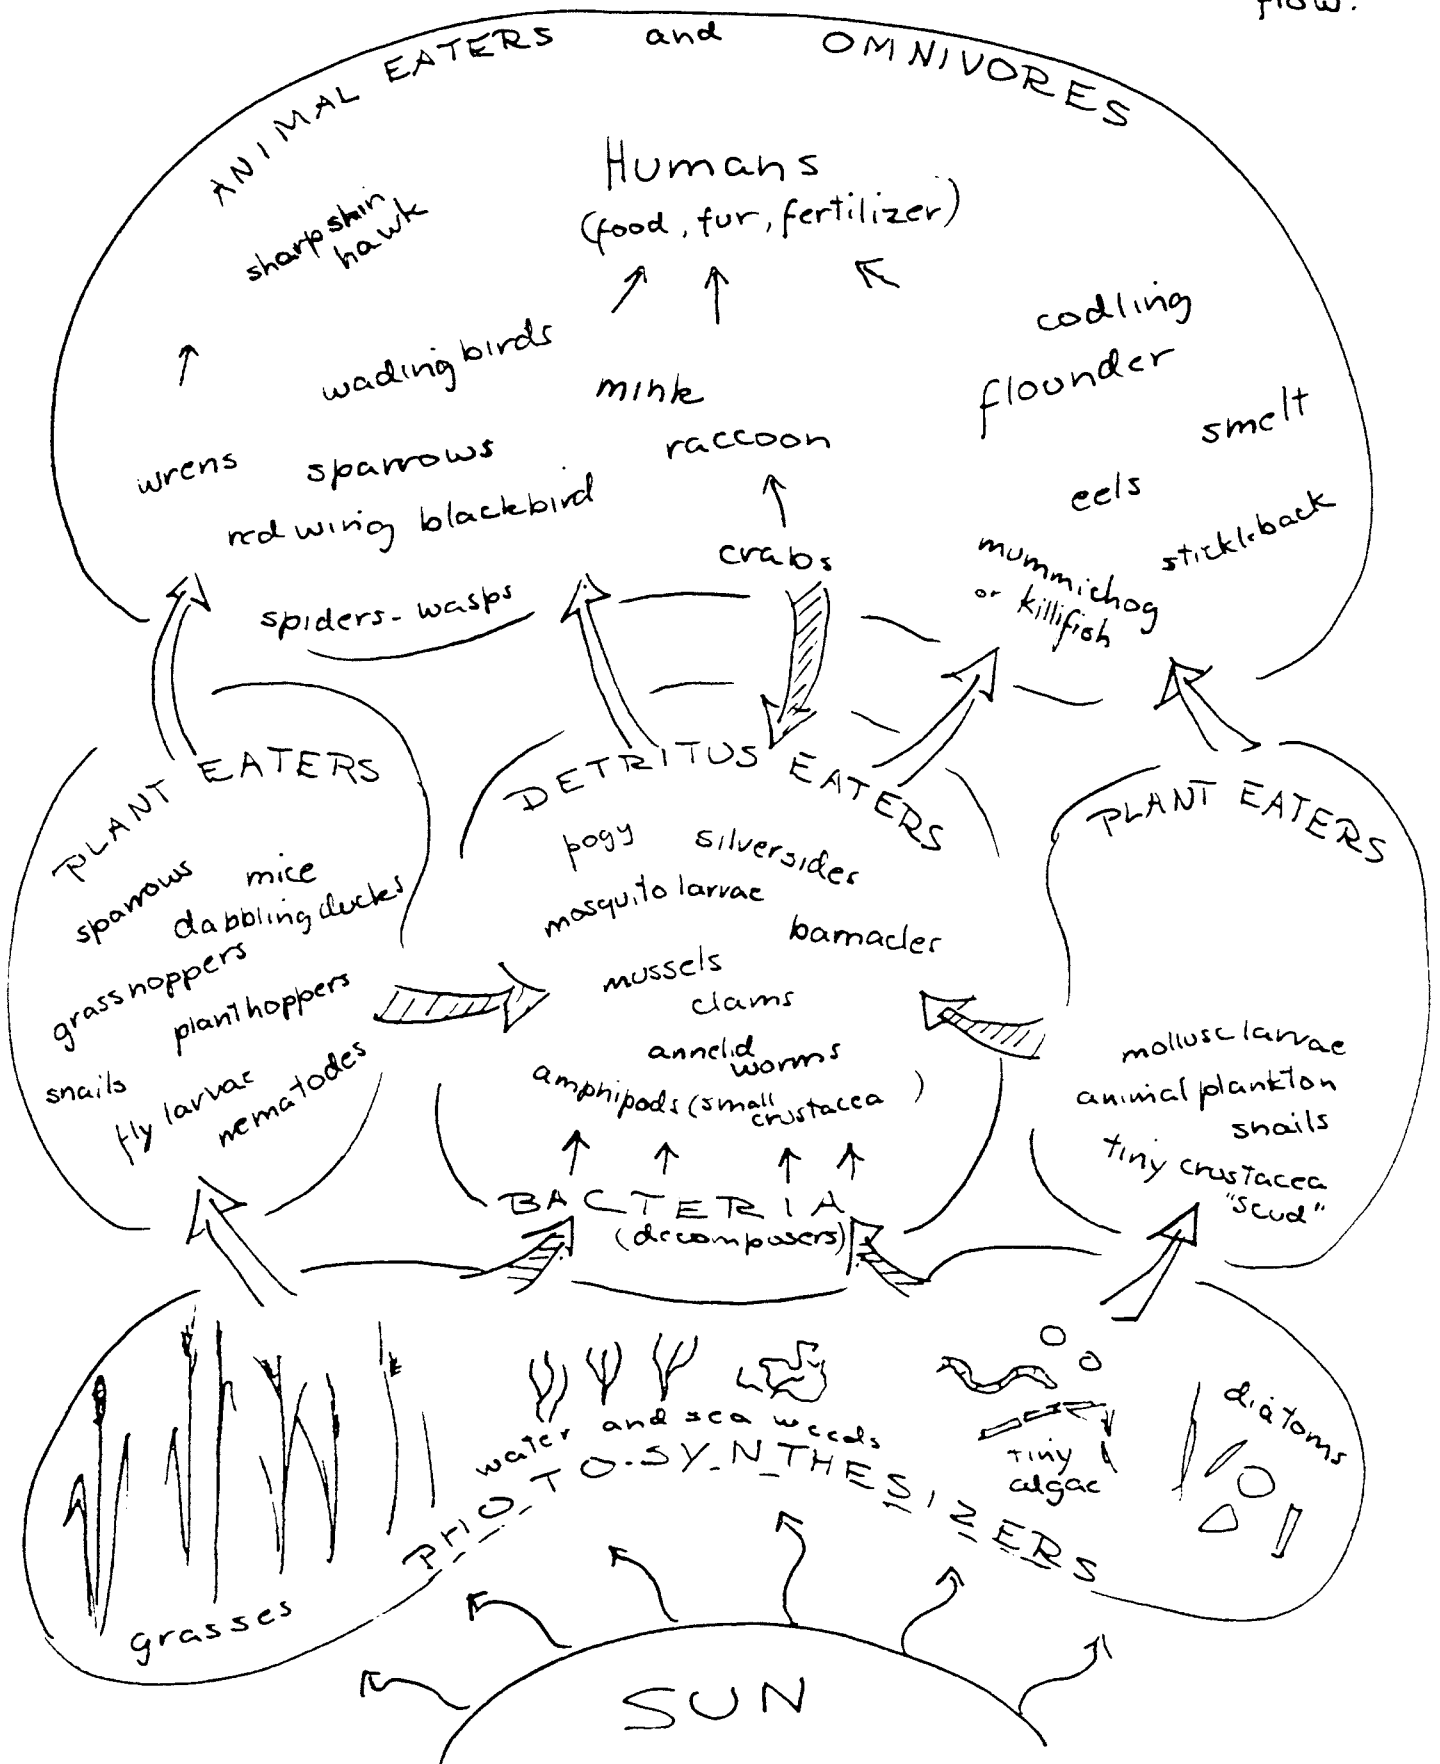 flow.
ANIMAL EATERS and OMNIVORES
Humans
(food, fur, fertilizer)
sharpshin
hawk
wading birds
mink
raccoon
codling
flounder
smelt
wrens
sparrows
red wing blackbird
eels
stickleback
crabs
mummichog
or killifish
spiders - wasps
PLANT EATERS
sparrows
mice
dabbling ducks
grasshoppers
planthoppers
snails
fly larvae
nematodes
DETRITUS EATERS
pogy
silversides
mosquito larvae
barnacles
mussels
clams
annelid
worms
amphipods (small
crustacea )
BACTERIA
(decomposers)
PLANT EATERS
mollusc larvae
animal plankton
snails
tiny crustacea
"scud"
water and sea weeds
tiny
algae
diatoms
grasses
PHOTO-SYNTHESIZERS
SUN